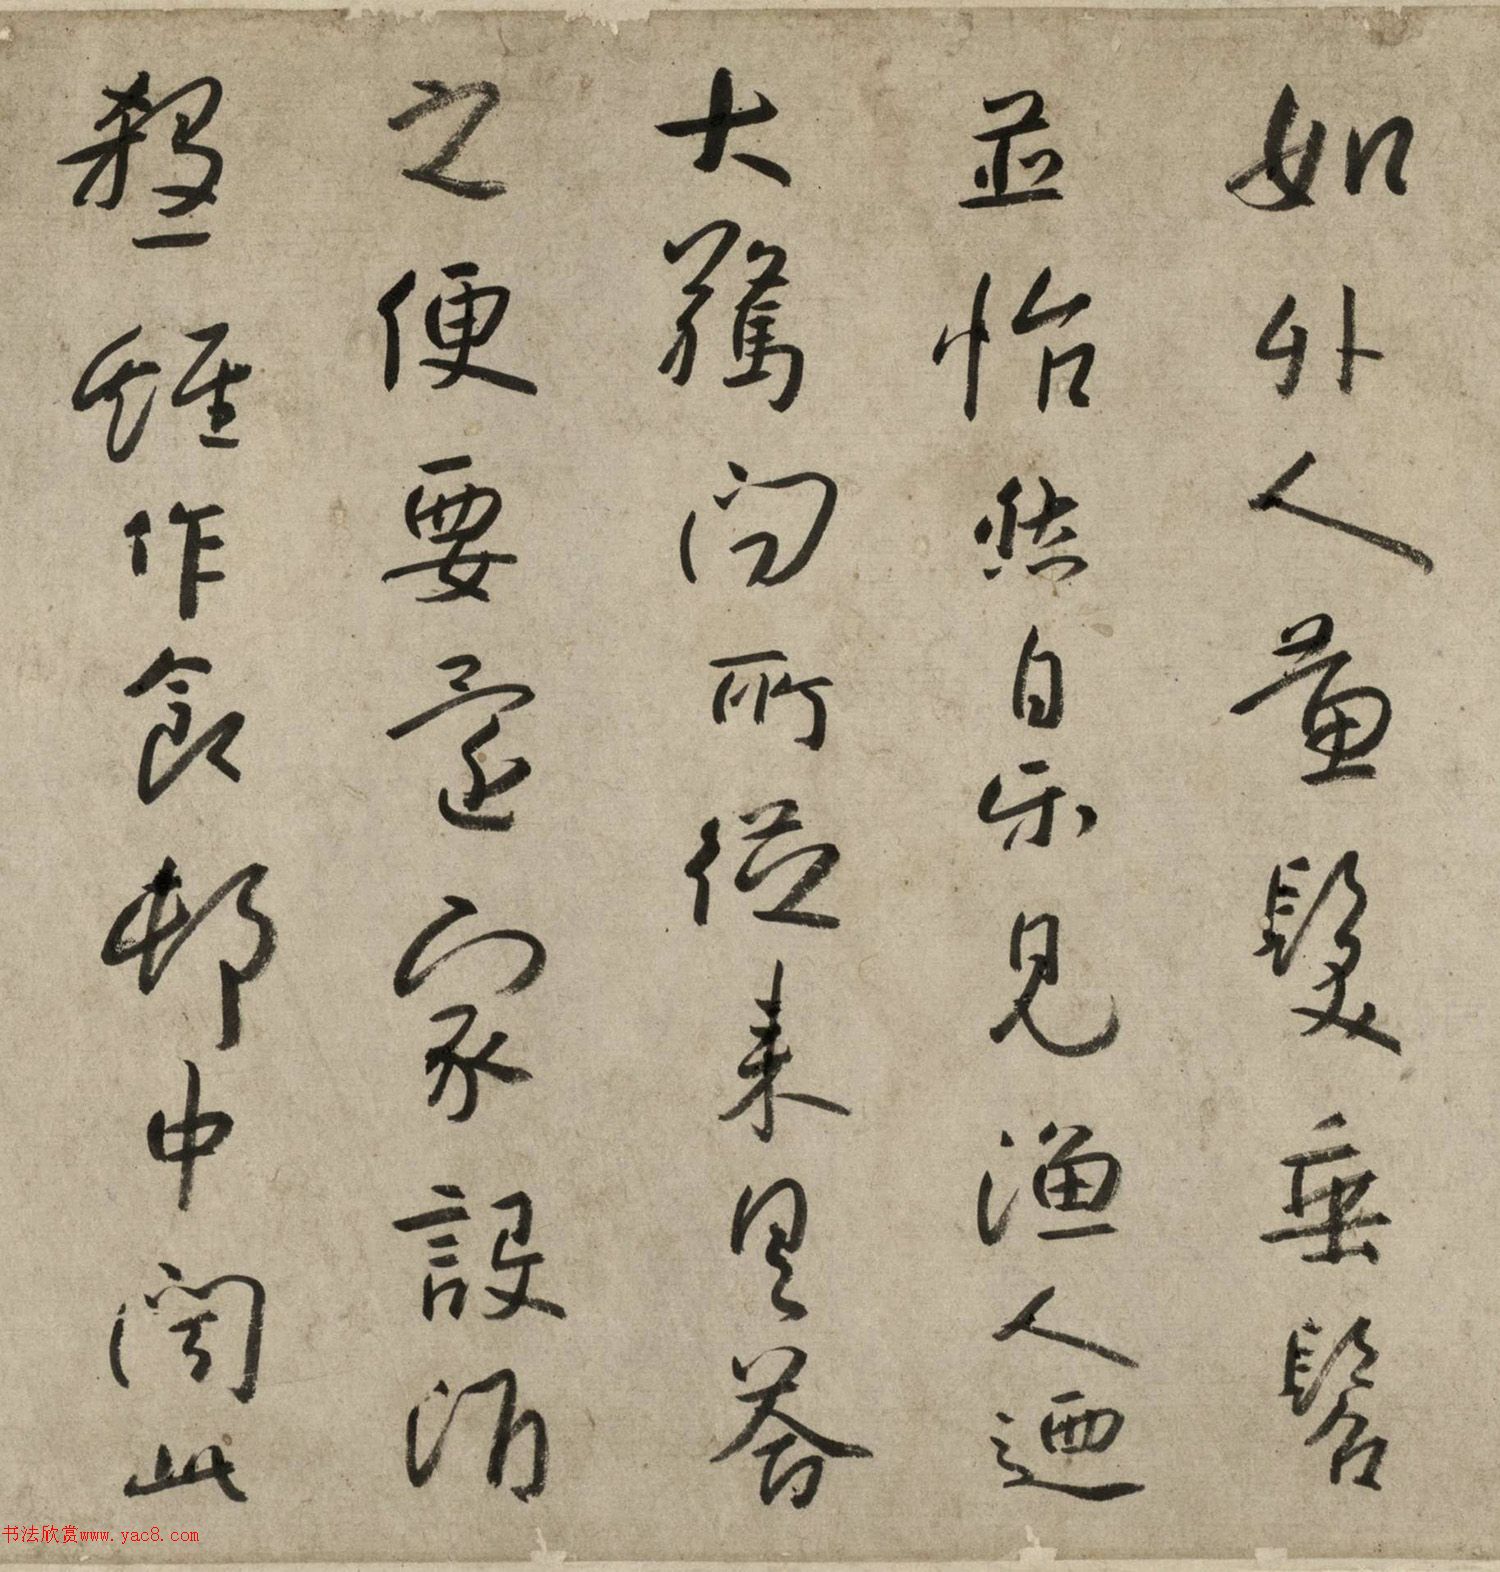 如外人黃髮垂髫
並怡然自樂見漁人迺
大驚問所從來具荅
之便要還家設酒
殺一雞作食邨中聞此
书法欣赏www.yac8.com